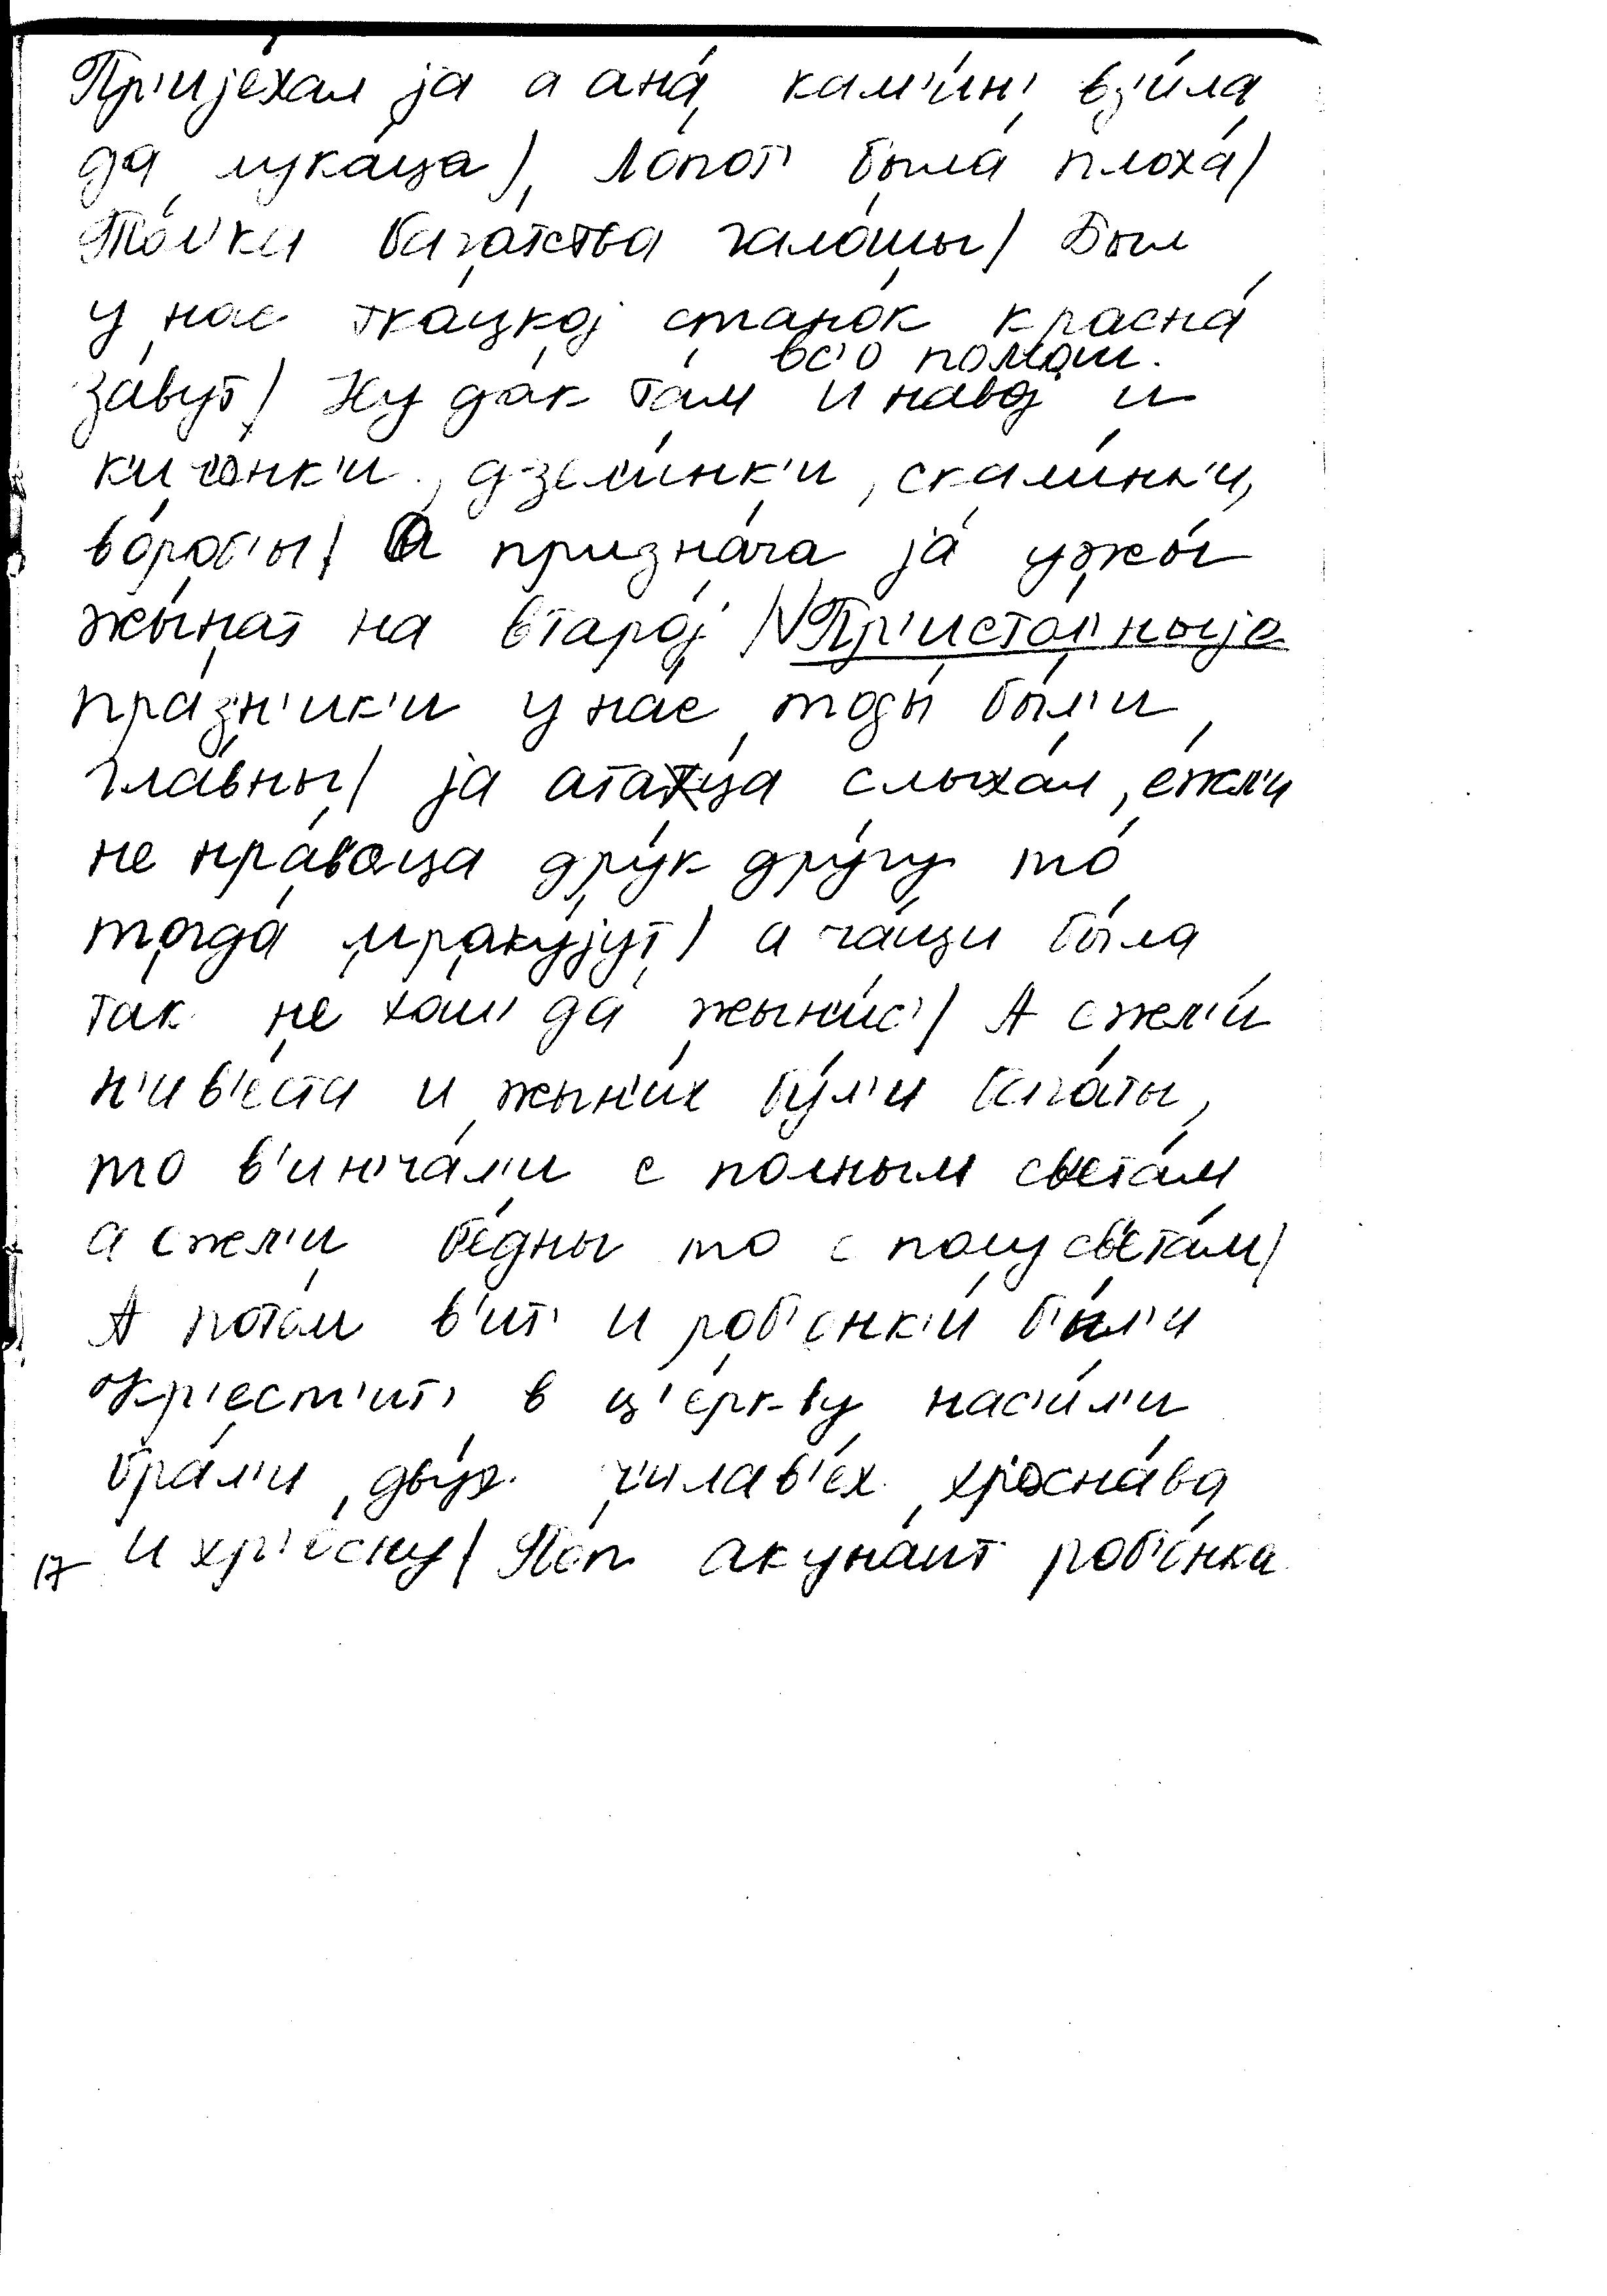 Пр'ијéхал ја а анá кам'úн' вз'úла
да лукáца/ Лóпот' былá плохá/
Тóл'ка багáтства галóшы/ Был
у нас ткáцкој станóк краснá
завýт/ Ну дáк там и навој и
вс'о помаш.
к'ичúнк'и, дзелúнк'и, скалúнк'и,
вóроб'ы/ А признáча јá ужы́
жынáт на втарој /V Пр'истóл'ныје
прáзн'ик'и у нас тоды́ бы́л'и
глáвны/ ја атаца слыхáл, éжл'и
не нрáвеца дрýк дрýгу тó
тогдá мракýјут/ а чáщи бы́ла
так не хош' да жын'úс'/ А ежел'и
н'ив'éста и жын'úх бы́л'и багáты,
то в'ин'чáл'и с полным светáм
а ежел'и бéдны то с полу светáм/
А потóм в'ит' и роб'онк'и бы́л'и
кр'ест'ит' в ц'éркву нас'úл'и
брáл'и двýх ч'илав'éх хр'оснáва
и хр'óсну/ Пóп акунáит роб'óнка
17